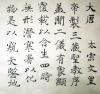 大唐 太宗文皇
帝製三藏聖教序
蓋聞二儀有像顯
覆載以含生四時
無形潛寒暑以化
物是以窺天鑑地